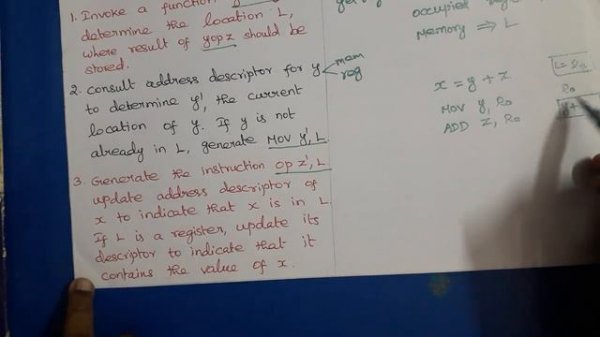 1. Invoke a function
determine the location L,
where result of yopz should be
stored.
2. consult address descriptor for y mem
reg
to determine y', the current
location of y. If y is not
already in L, generate MOV y', L
3. Generate the instruction op z', L
update address descriptor of
x to indicate that x is in L
If L is a register, update its
descriptor to indicate that it
contains the value of x.
occupied
Memory ⇒ L
x = y + z
MOV y, R0
ADD z, R0
L = R0
R0
y+